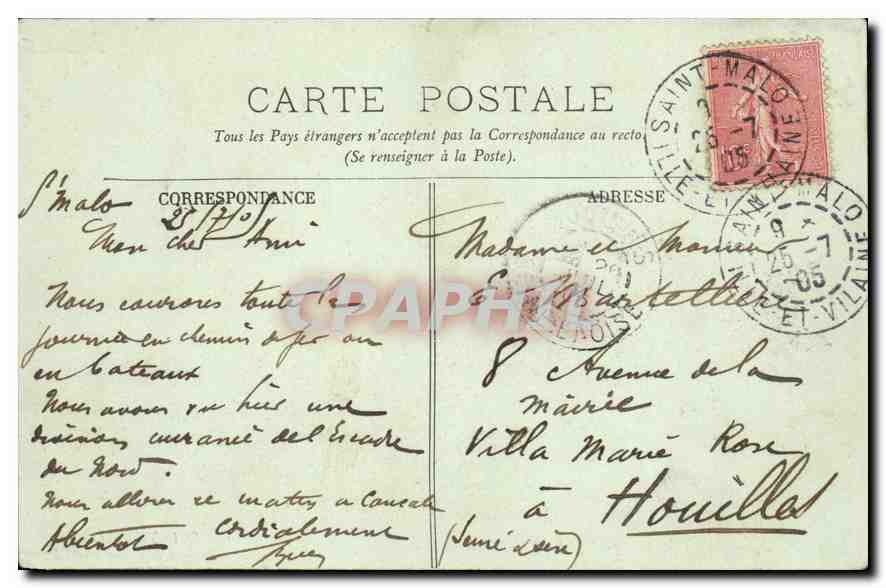 CARTE POSTALE
Tous les Pays étrangers n'acceptent pas la Correspondance au recto.
(Se renseigner à la Poste).
CORRESPONDANCE
St Malo
Mon cher Ami
Nous courons toute la
journée en chemin de fer ou
en bateaux
Nous avons vu hier une
division cuirassé de l'Escadre
du Nord.
Nous allons ce matin a Cancale
Abientot Cordialement
ADRESSE
Madame et Monsieur
E. Martellière
8 Avenue de la
Mairie
Villa Marie Rose
à Houilles
(Seine & Oise)
SAINT-MALO
25 -7
05
ILLE-ET-VILAINE
SAINT-MALO
9
25 -7
05
ILLE-ET-VILAINE
CPAPHIL